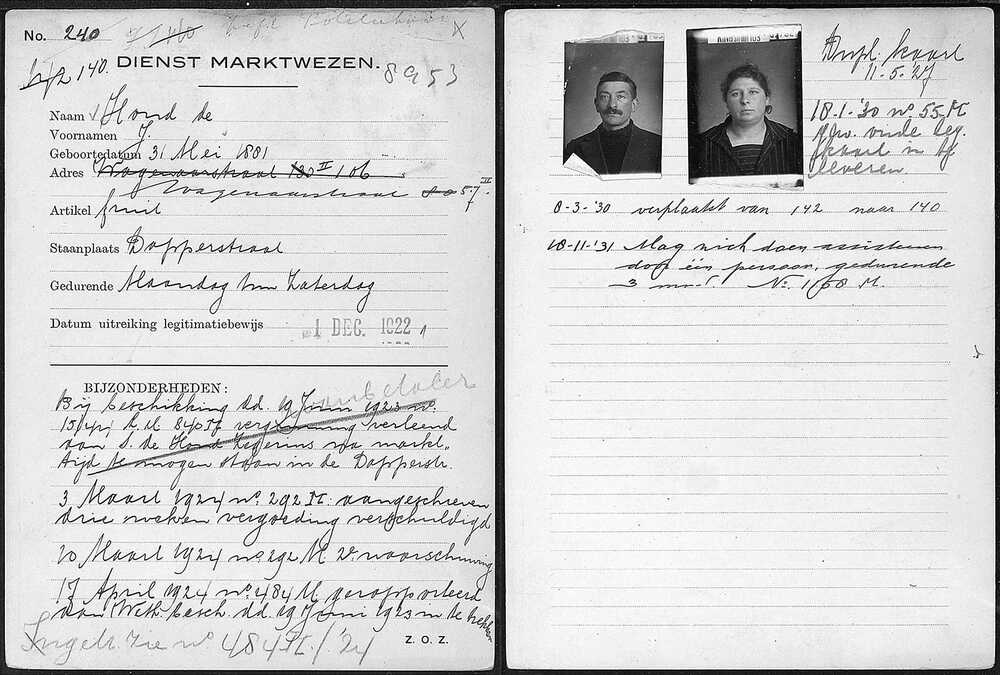 No. 240
142 140. DIENST MARKTWEZEN. 8953
Naam Hond de
Voornamen J.
Geboortedatum 31 Mei 1881
Adres Wagenaarstraat 130 II 106
Wagenaarstraat 80 57 II.
Artikel fruit
Staanplaats Dapperstraat
Gedurende Maandag t/m Zaterdag
Datum uitreiking legitimatiebewijs 1 DEC. 1922
BIJZONDERHEDEN: wanbetaler
Bij beschikking dd. 19 Juni 1923 no.
vergunning verleend
aan de Hond na markt-
tijd te mogen staan in de Dapperstr.
3 Maart 1924 no. 292 M. aangeschreven
drie weken vergoeding verschuldigd
20 Maart 1924 no. 292 M. 2e waarschuwing
17 April 1924 no. 484 M. gerapporteerd
aan Weth. besch. dd. 19 Juni 1923 in te trekken
Ingetr. Zie no 484 M./'24
Z. O. Z.
Dupl. kaart
11-5-'27
18-1-'30 no. 55 M
gew. vinde leg.
kaart in te
leveren.
8-3-'30 verplaatst van 142 naar 140
18-11-'31 Mag zich doen assisteeren
door één persoon, gedurende
3 mnd. No. 1168 M.